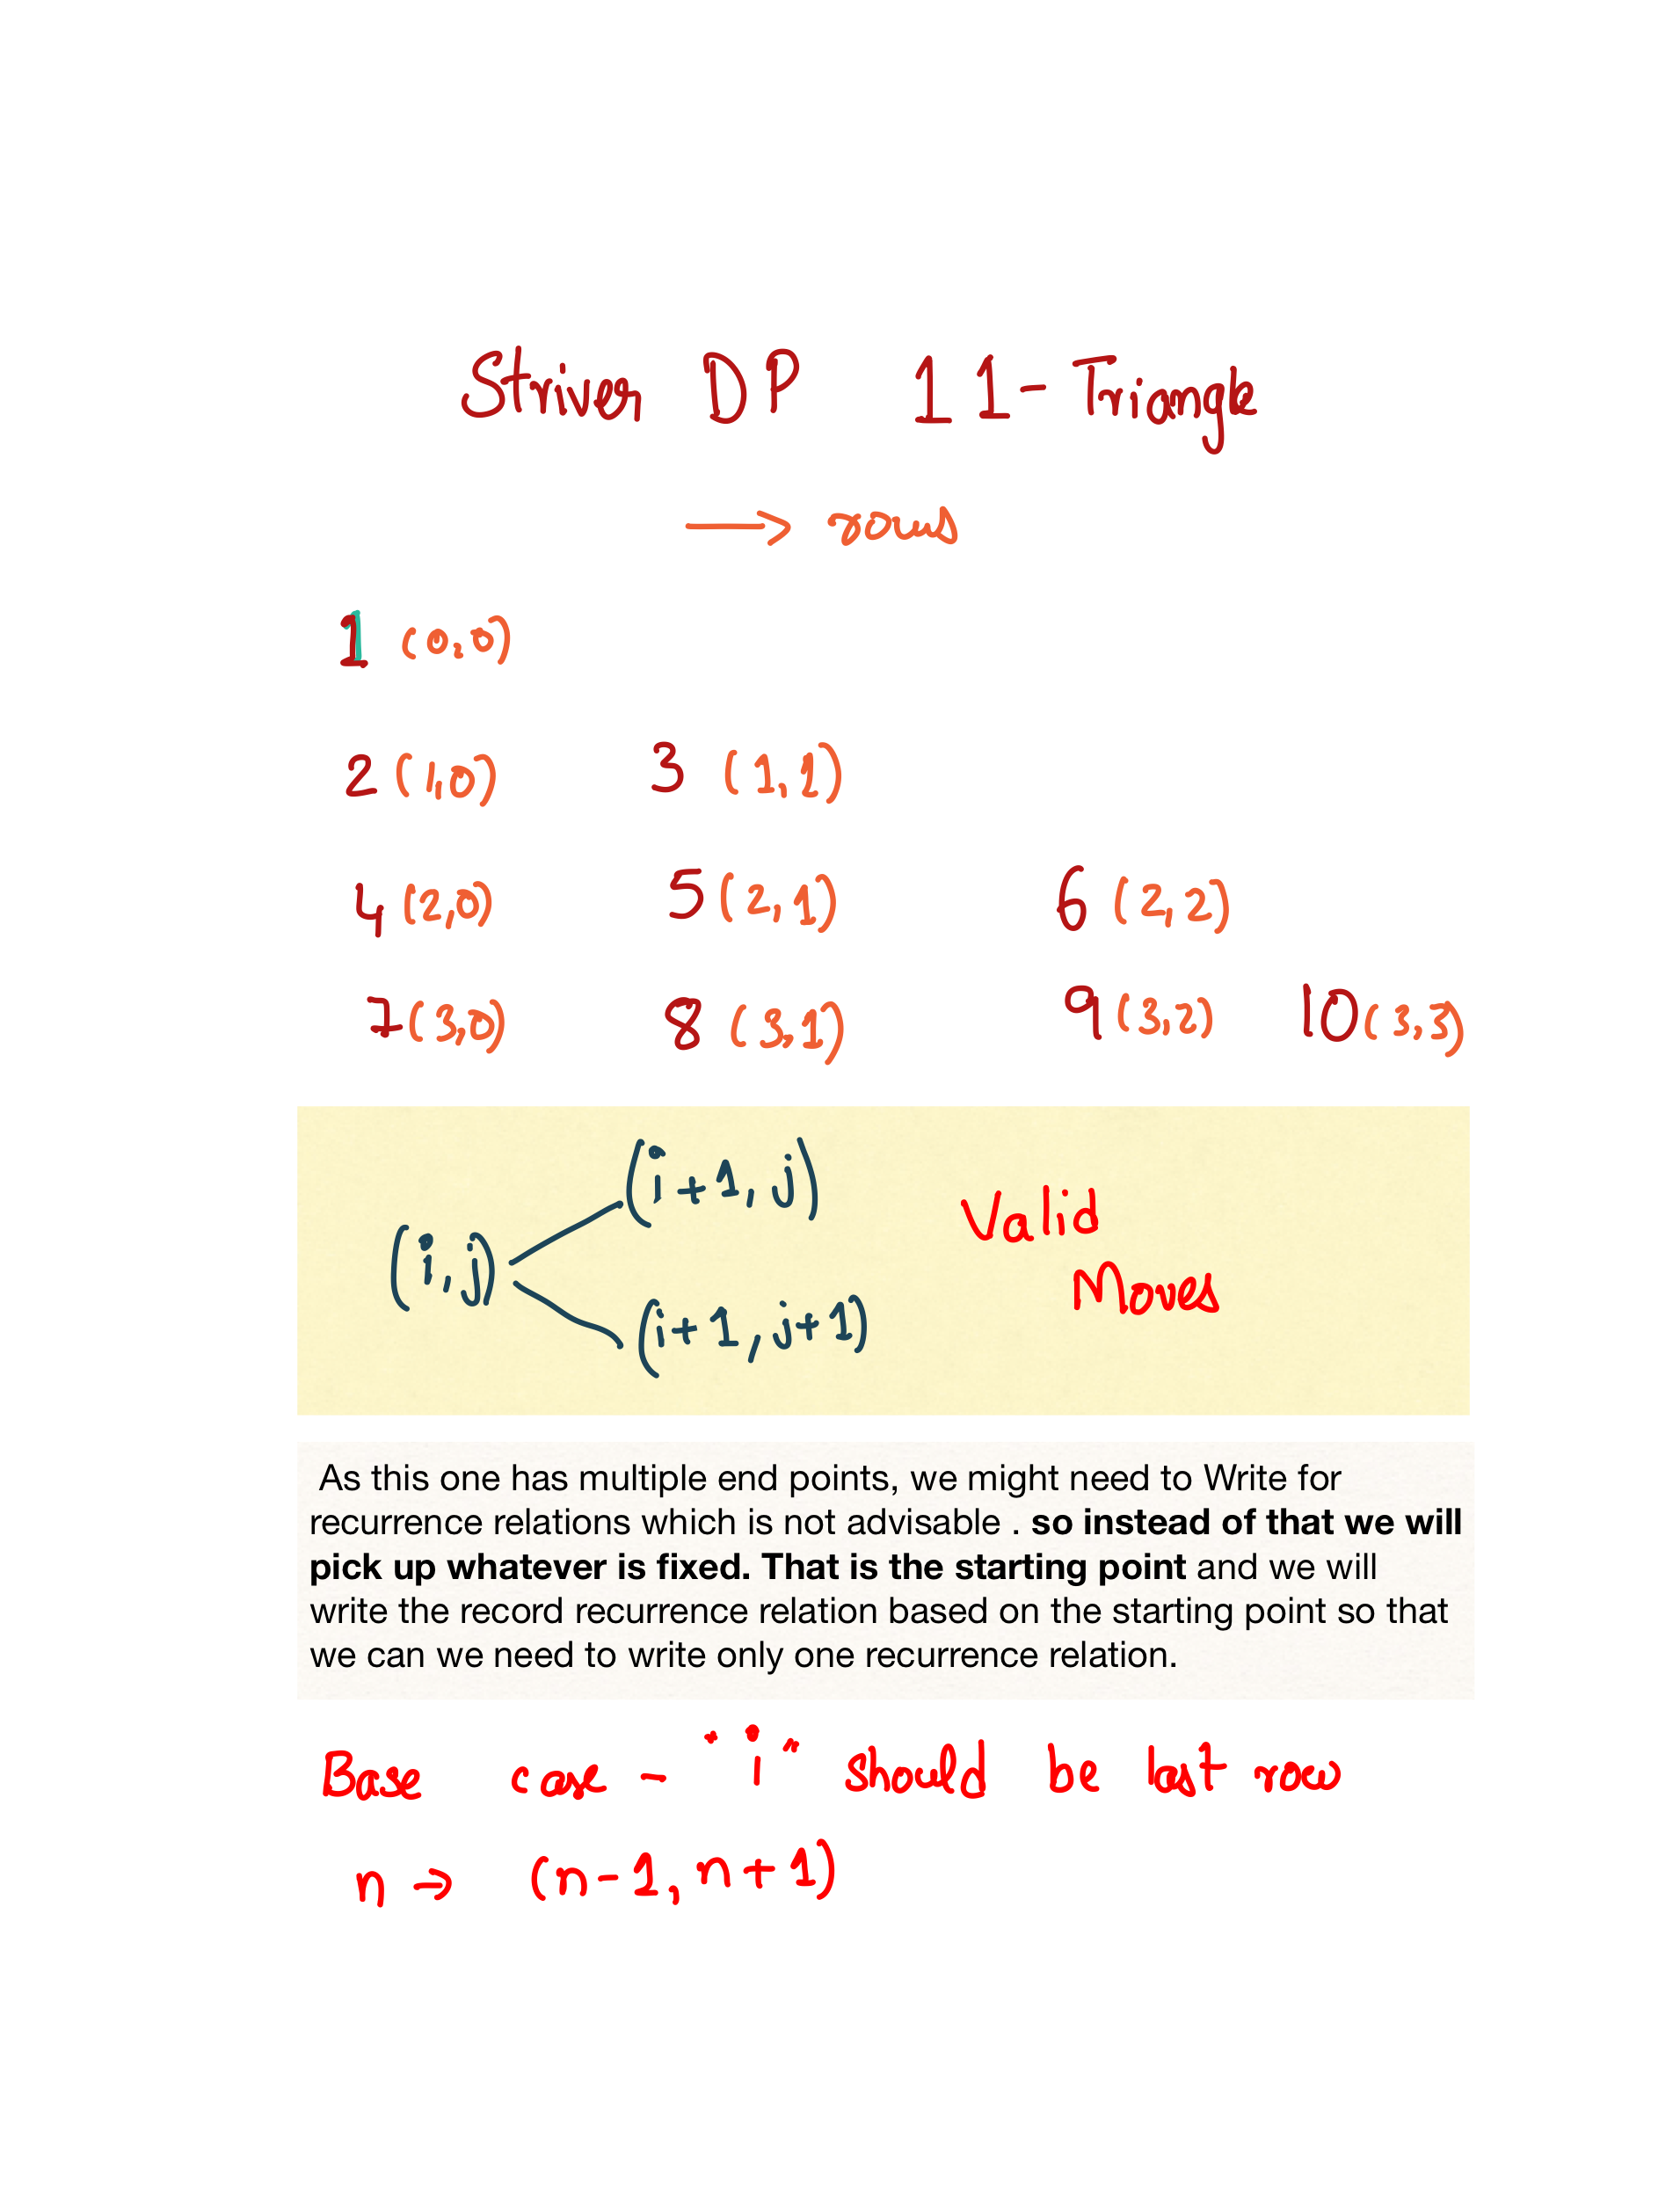 Striver DP 11-Triangle
→ rows
1 (0,0)
2 (1,0) 3 (1,1)
4 (2,0) 5 (2,1) 6 (2,2)
7 (3,0) 8 (3,1) 9 (3,2) 10 (3,3)
(i+1, j)
(i,j)
(i+1, j+1)
Valid
Moves
As this one has multiple end points, we might need to Write for
recurrence relations which is not advisable . so instead of that we will
pick up whatever is fixed. That is the starting point and we will
write the record recurrence relation based on the starting point so that
we can we need to write only one recurrence relation.
Base case - "i" should be last row
n → (n-1, n+1)